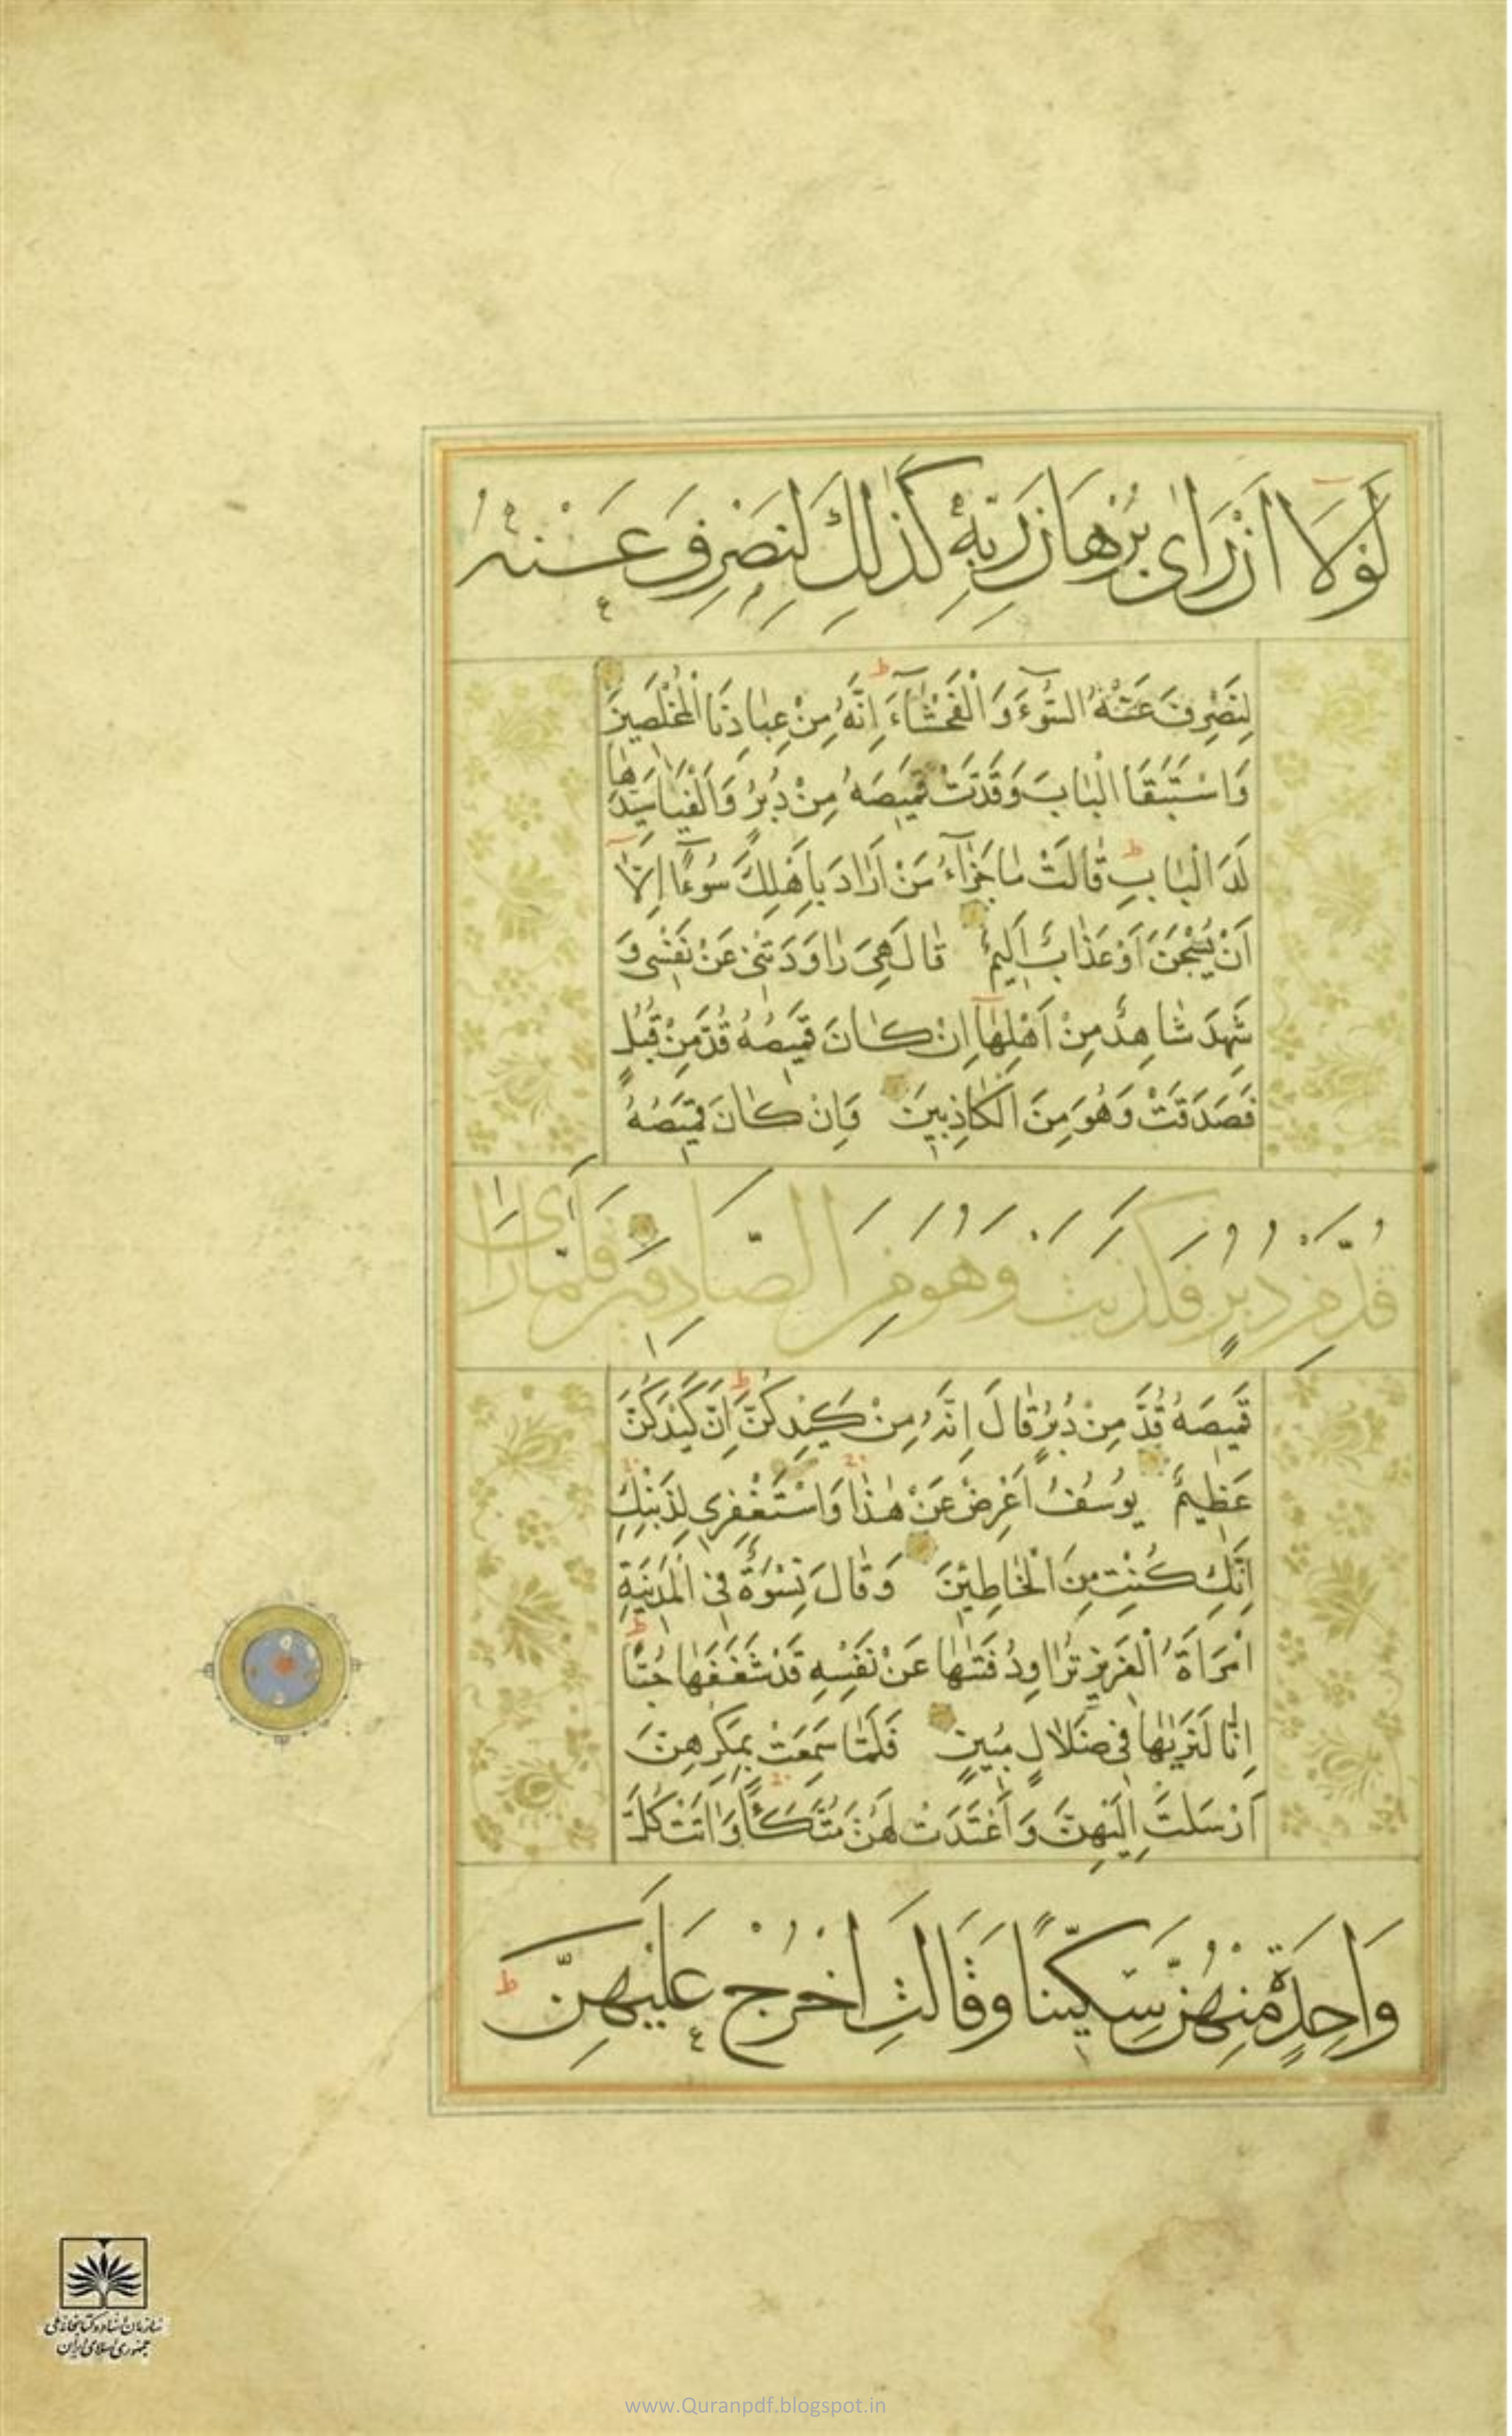 لَوْلَا اَنْ رَاىٰ بُرْهَانَ رَبِّهٖ كَذٰلِكَ لِنَصْرِفَ عَنْهُ
لِنَصْرِفَ عَنْهُ السُّوٓءَ وَالْفَحْشَآءَ ط اِنَّهُ مِنْ عِبَادِنَا الْمُخْلَصِينَ
وَاسْتَبَقَا الْبَابَ وَقَدَّتْ قَمِيصَهُ مِنْ دُبُرٍ وَاَلْفَيَا سَيِّدَهَا
لَدَا الْبَابِ ط قَالَتْ مَا جَزَآءُ مَنْ اَرَادَ بِاَهْلِكَ سُوٓءًا اِلَّآ
اَنْ يُسْجَنَ اَوْ عَذَابٌ اَلِيمٌ قَالَ هِىَ رَاوَدَتْنِى عَنْ نَفْسِى وَ
شَهِدَ شَاهِدٌ مِنْ اَهْلِهَآ اِنْ كَانَ قَمِيصُهُ قُدَّ مِنْ قُبُلٍ
فَصَدَقَتْ وَهُوَ مِنَ الْكَاذِبِينَ وَاِنْ كَانَ قَمِيصُهُ
قُدَّ مِنْ دُبُرٍ فَكَذَبَتْ وَهُوَ مِنَ الصَّادِقِينَ فَلَمَّا رَاٰى
قَمِيصَهُ قُدَّ مِنْ دُبُرٍ قَالَ اِنَّهُ مِنْ كَيْدِكُنَّ ط اِنَّ كَيْدَكُنَّ
عَظِيمٌ يُوسُفُ اَعْرِضْ عَنْ هٰذَا وَاسْتَغْفِرِى لِذَنْبِكِ
اِنَّكِ كُنْتِ مِنَ الْخَاطِئِينَ وَقَالَ نِسْوَةٌ فِى الْمَدِينَةِ
امْرَاَةُ الْعَزِيزِ تُرَاوِدُ فَتٰىهَا عَنْ نَفْسِهِ قَدْ شَغَفَهَا حُبًّا ط
اِنَّا لَنَرٰيهَا فِى ضَلَالٍ مُبِينٍ فَلَمَّا سَمِعَتْ بِمَكْرِهِنَّ
اَرْسَلَتْ اِلَيْهِنَّ وَاَعْتَدَتْ لَهُنَّ مُتَّكَـًٔا وَاٰتَتْ كُلَّ
وَاحِدَةٍ مِنْهُنَّ سِكِّينًا وَقَالَتِ اخْرُجْ عَلَيْهِنَّ ط
سازمان اسناد و کتابخانه ملی
جمهوری اسلامی ایران
www.Quranpdf.blogspot.in